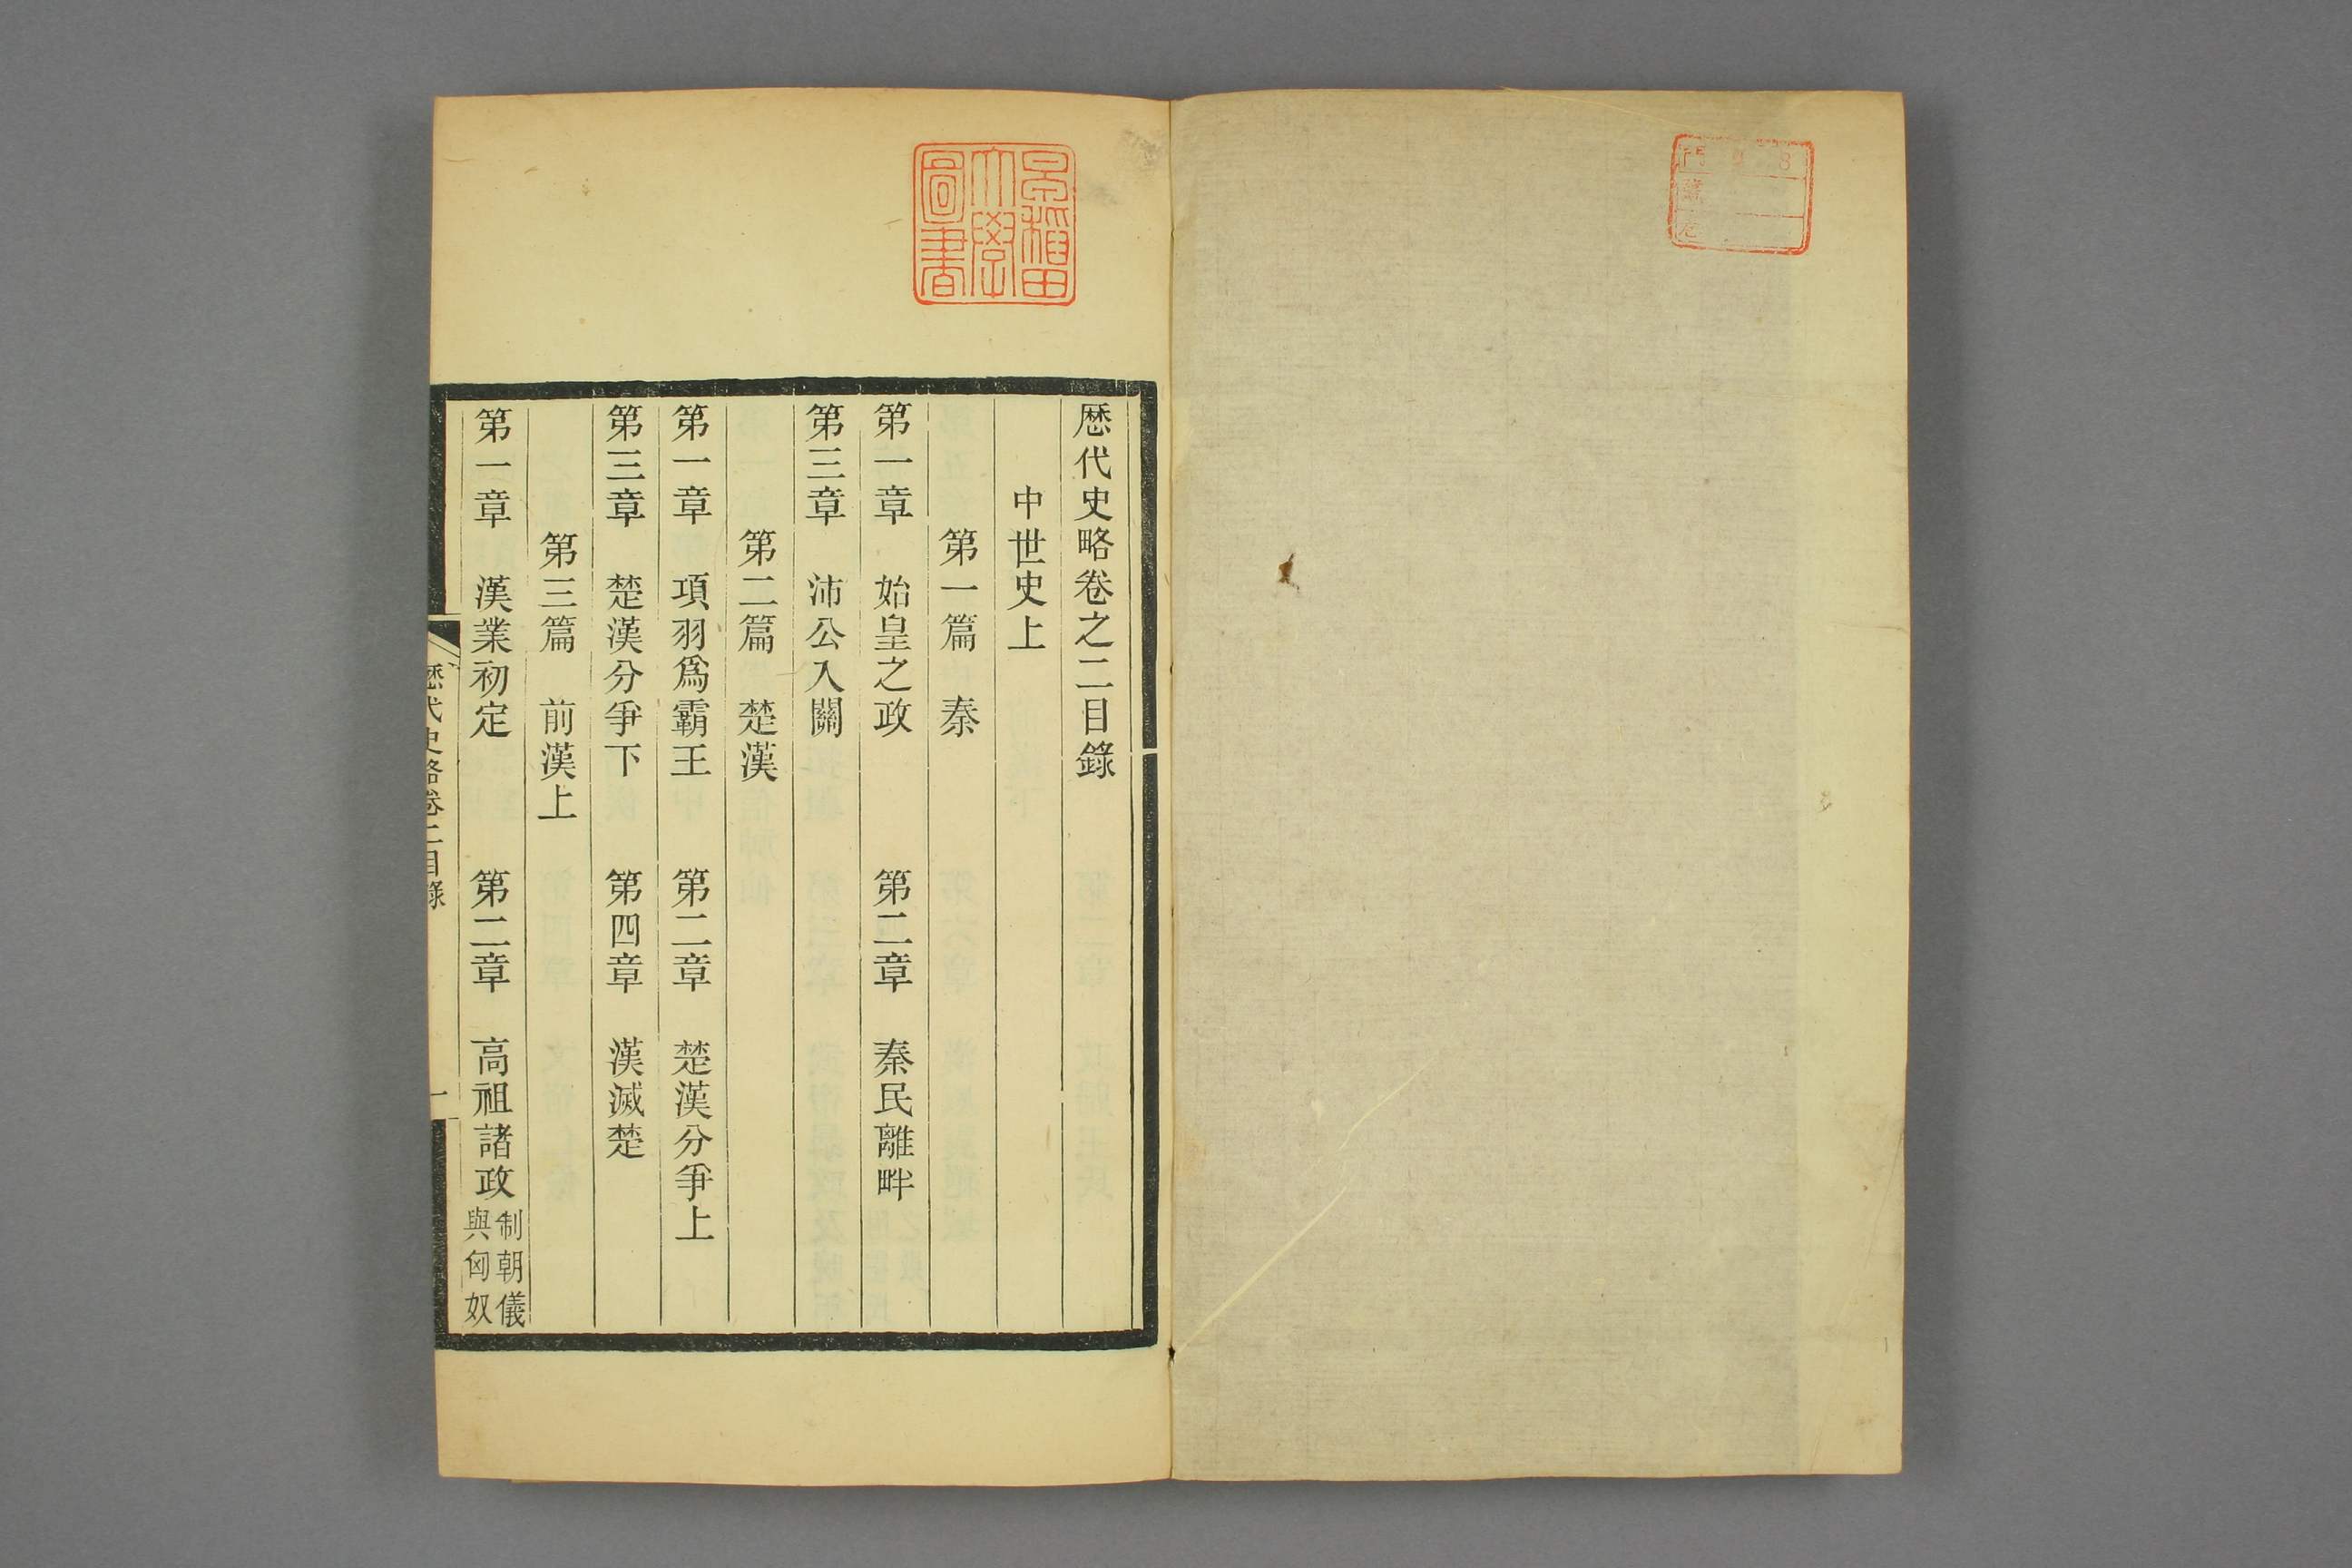 早稲田
大學
圖書
歴代史略卷之二目錄
中世史上
第一篇　秦
第一章　始皇之政　第二章　秦民離畔
第三章　沛公入關
第二篇　楚漢
第一章　項羽爲霸王　第二章　楚漢分爭上
第三章　楚漢分爭下　第四章　漢滅楚
第三篇　前漢上
第一章　漢業初定　第二章　高祖諸政 制朝儀 與匈奴
歴代史略卷二目錄　一